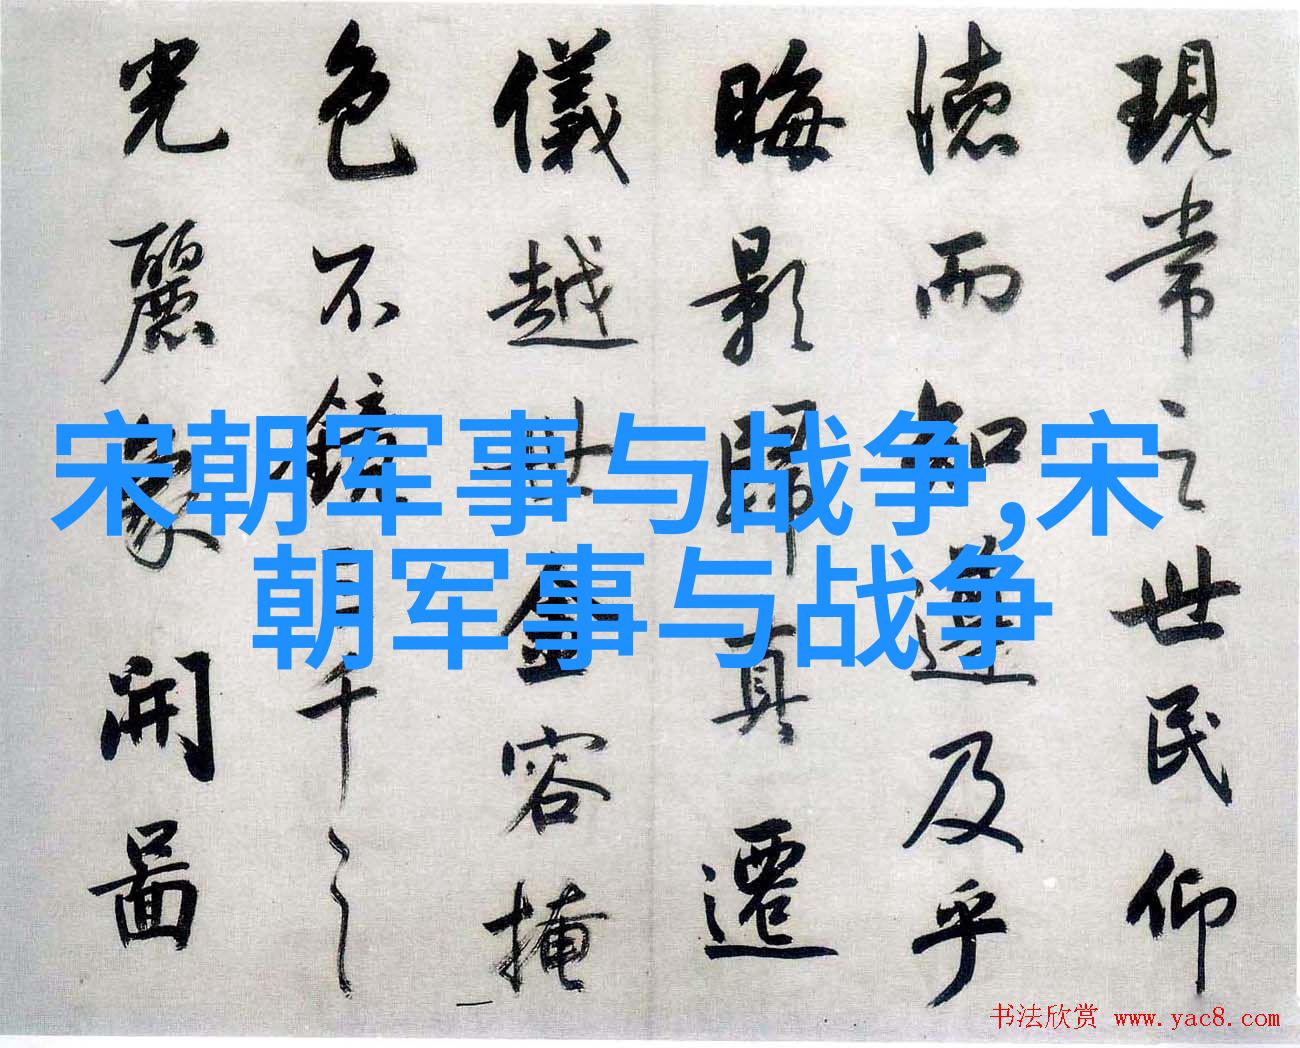 現常之世民仰
德而知遵及乎
晦影歸真遷
儀越世金容掩
色不鏡三千之
光麗象開圖
宋朝军事与战争,宋
朝军事与战争
书法欣赏 www.yac8.com